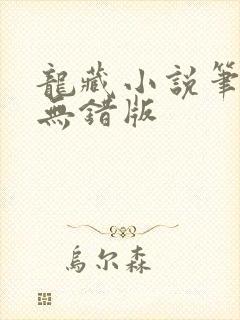 龍藏小說筆
無錯版
烏尔森